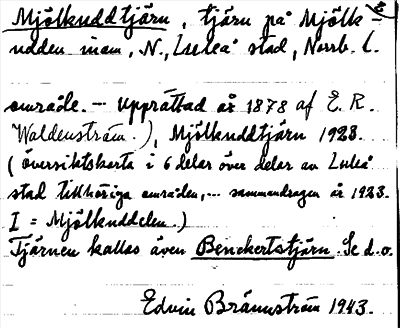 Mjölkuddtjärn, tjärn på Mjölk-
udden inom, N., Luleå stad, Norrb. l.
område. - Upprättad år 1878 af E. R.
Waldenström.), Mjölkuddtjärn 1928.
(översiktskarta i 6 delar över delar av Luleå
stad tillhöriga områden,... sammandragen år 1928.
I = Mjölkuddelen.)
Tjärnen kallas även Benckertstjärn. Se d.o.
Edvin Brännström 1943.